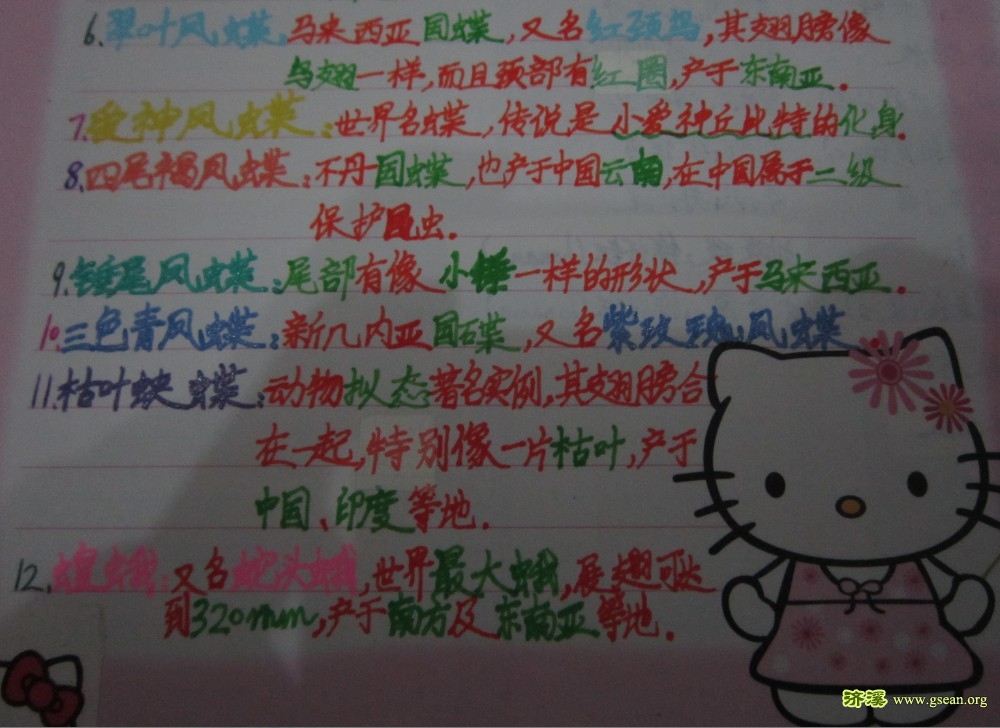 6.翠叶凤蝶:马来西亚国蝶,又名红颈鸟,其翅膀像
鸟翅一样,而且颈部有红圈,产于东南亚.
7.爱神凤蝶:世界名蝶,传说是小爱神丘比特的化身.
8.四尾褐凤蝶:不丹国蝶,也产于中国云南,在中国属于二级
保护昆虫.
9.锤尾凤蝶:尾部有像小锤一样的形状,产于马来西亚.
10.三色青凤蝶:新几内亚国蝶,又名紫玫瑰凤蝶.
11.枯叶蛱蝶:动物拟态著名实例,其翅膀合
在一起,特别像一片枯叶,产于
中国、印度等地.
12.蝗蛾:又名蛇头蛾,世界最大蛾,展翅可达
到320mm,产于南方及东南亚等地.
济溪 www.gsean.org